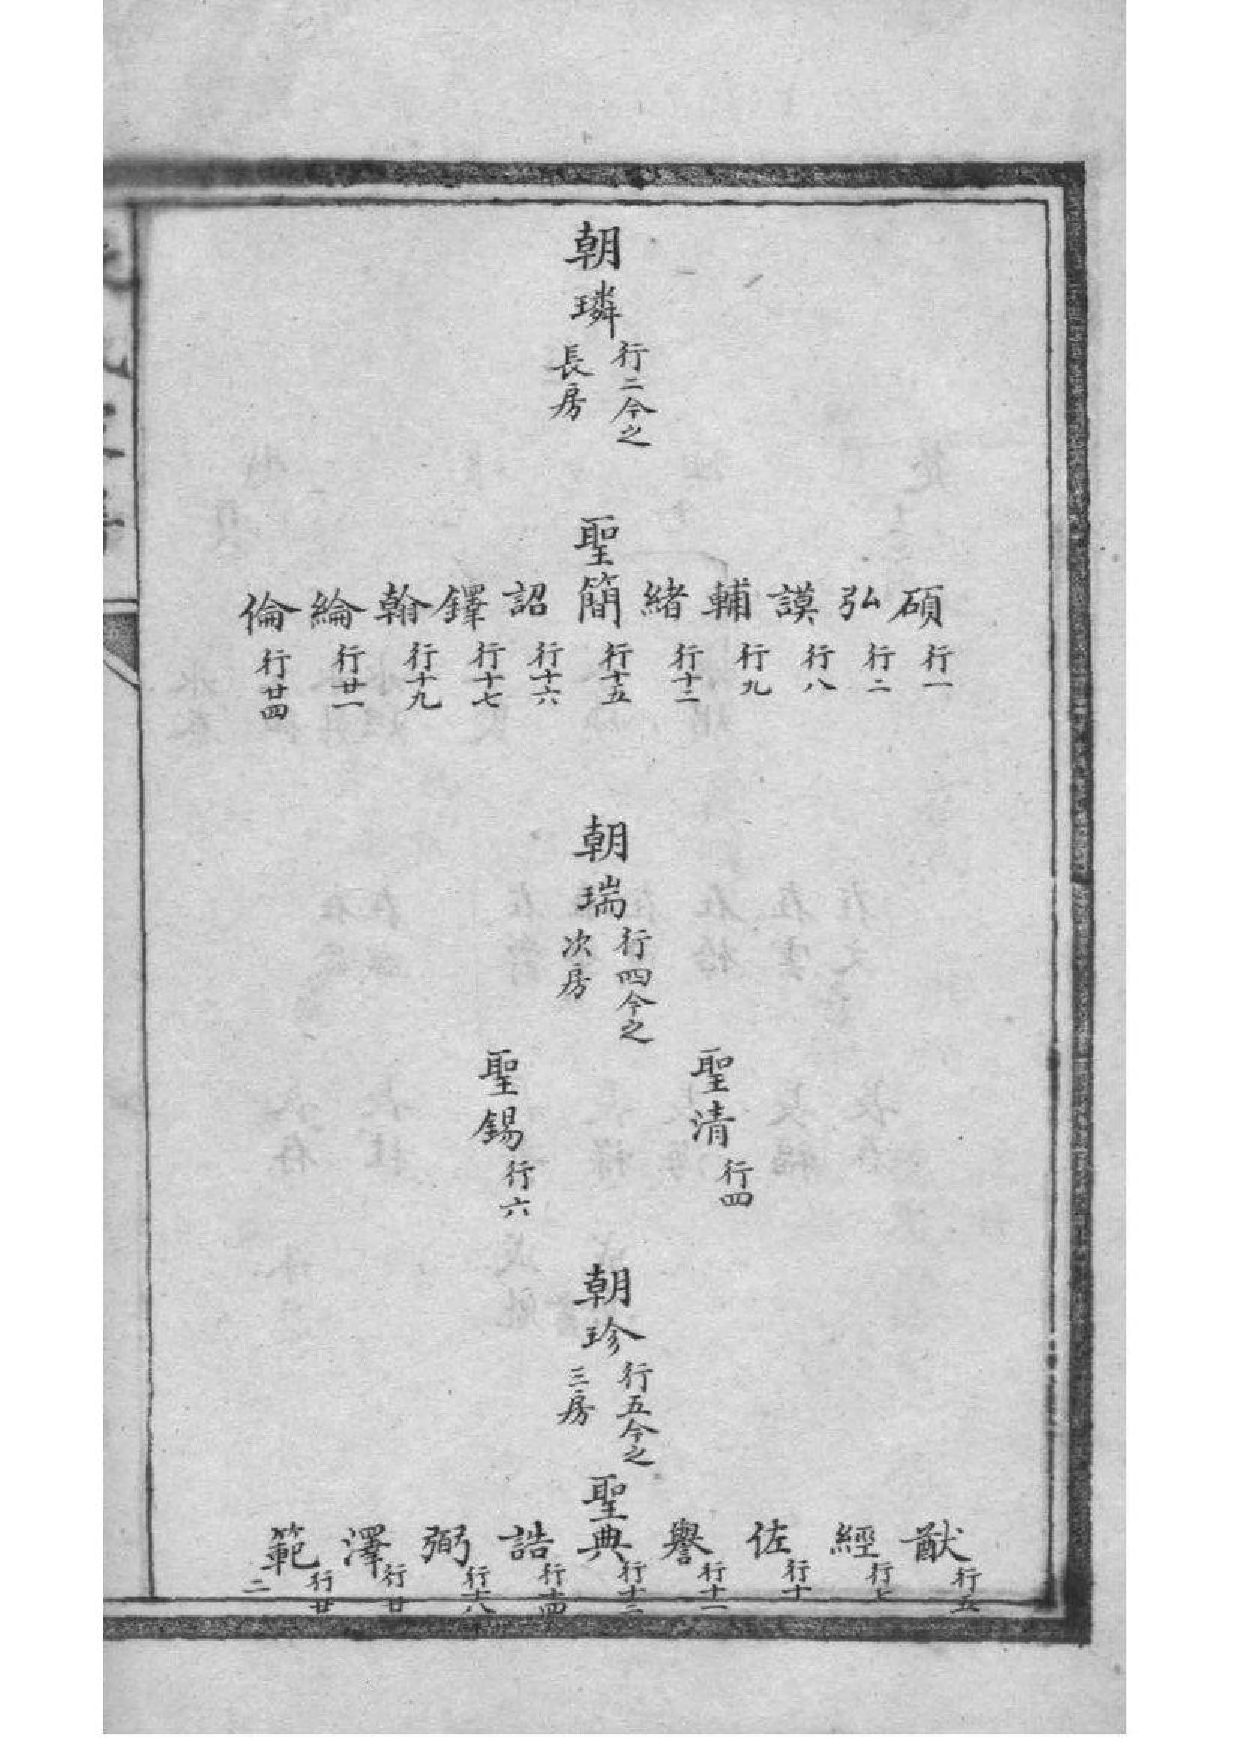 朝璘 行二今之長房
聖
碩 行一
弘 行二
謨 行八
輔 行九
緒 行十二
簡 行十五
詔 行十六
鐸 行十七
翰 行十九
綸 行廿一
倫 行廿四
朝瑞 行四今之次房
聖清 行四
聖錫 行六
朝珍 行五今之三房
聖
猷 行五
經 行七
佐 行十
譽 行十一
典 行十三
誥 行十四
弼 行十八
澤 行廿
範 行廿二